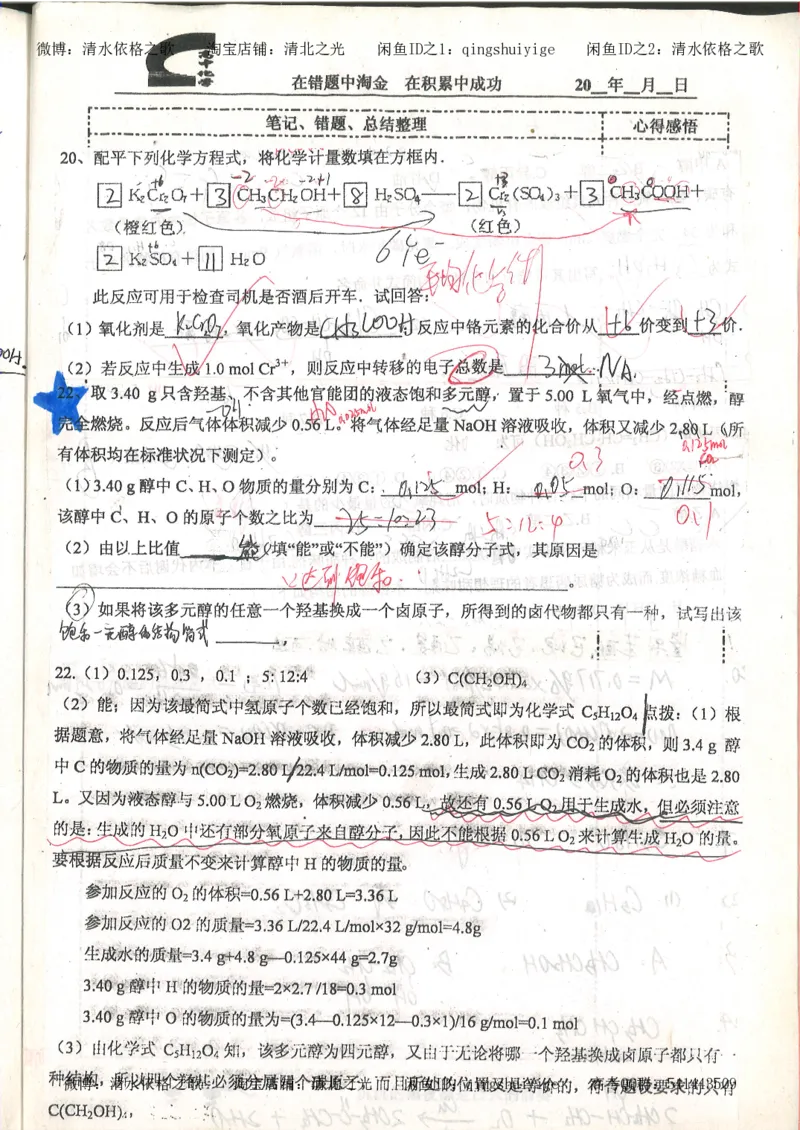 微博：清水依格之歌 淘宝店铺：清北之光 闲鱼ID之1：qingshuiyige 闲鱼ID之2：清水依格之歌
在错题中淘金 在积累中成功 20__年__月__日
笔记、错题、总结整理 心得感悟
20、配平下列化学方程式，将化学计量数填在方框内．
2 K₂Cr₂O₇+ 3 CH₃CH₂OH+ 8 H₂SO₄—— 2 Cr₂(SO₄)₃+ 3 CH₃COOH+
（橙红色） （红色）
2 K₂SO₄+ 11 H₂O
6e⁻
此反应可用于检查司机是否酒后开车．试回答：
（1）氧化剂是 K₂Cr₂O₇，氧化产物是 CH₃COOH 反应中铬元素的化合价从 +6 价变到 +3 价．
（2）若反应中生成 1.0 mol Cr³⁺，则反应中转移的电子总数是 3 NA
22、取 3.40 g 只含羟基、不含其他官能团的液态饱和多元醇，置于 5.00 L 氧气中，经点燃，醇
完全燃烧。反应后气体体积减少 0.56 L。将气体经足量 NaOH 溶液吸收，体积又减少 2.80 L（所
有体积均在标准状况下测定）。
0.125mol
CO₂
0.3
（1）3.40 g 醇中 C、H、O 物质的量分别为 C： 0.125 mol；H： 0.05 mol；O： 0.115 mol，
0.1
该醇中 C、H、O 的原子个数之比为 25:10:23 5:12:4
（2）由以上比值 能（填“能”或“不能”）确定该醇分子式，其原因是
达到饱和 。
（3）如果将该多元醇的任意一个羟基换成一个卤原子，所得到的卤代物都只有一种，试写出该
饱和一元醇的结构简式
22.（1）0.125，0.3 ，0.1 ；5: 12:4 （3）C(CH₂OH)₄
（2）能；因为该最简式中氢原子个数已经饱和，所以最简式即为化学式 C₅H₁₂O₄ 点拨：（1）根
据题意，将气体经足量 NaOH 溶液吸收，体积减少 2.80 L，此体积即为 CO₂ 的体积，则 3.4 g 醇
中 C 的物质的量为 n(CO₂)=2.80 L/22.4 L/mol=0.125 mol，生成 2.80 L CO₂ 消耗 O₂ 的体积也是 2.80
L。又因为液态醇与 5.00 L O₂ 燃烧，体积减少 0.56 L，故还有 0.56 L O₂ 用于生成水，但必须注意
的是：生成的 H₂O 中还有部分氧原子来自醇分子，因此不能根据 0.56 L O₂ 来计算生成 H₂O 的量。
要根据反应后质量不变来计算醇中 H 的物质的量。
参加反应的 O₂ 的体积=0.56 L+2.80 L=3.36 L
参加反应的 O2 的质量=3.36 L/22.4 L/mol×32 g/mol=4.8g
生成水的质量=3.4 g+4.8 g—0.125×44 g=2.7g
3.40 g 醇中 H 的物质的量=2×2.7 /18=0.3 mol
3.40 g 醇中 O 的物质的量为=(3.4—0.125×12—0.3×1)/16 g/mol=0.1 mol
（3）由化学式 C₅H₁₂O₄ 知，该多元醇为四元醇，又由于无论将哪一个羟基换成卤原子都只有
种结构，所以四个羟基必须分属四个碳原子，而且所处的位置又是等价的，符合题设要求的只有
C(CH₂OH)₄，